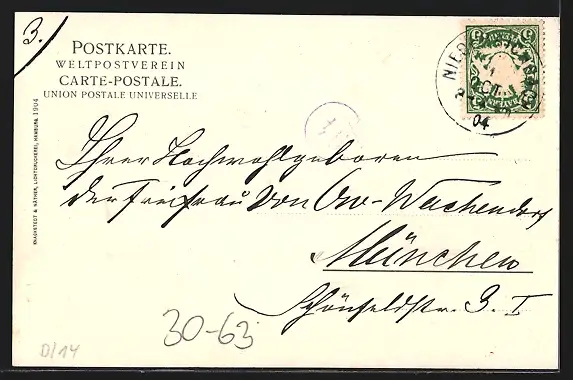 3.
POSTKARTE.
WELTPOSTVEREIN
CARTE-POSTALE.
UNION POSTALE UNIVERSELLE
KNACKSTEDT & NÄTHER, LICHTDRUCKEREI, HAMBURG. 1904
BAYERN
NIED
11
OCT.
04
Ihrer Hochwohlgeboren
der Freifrau von Ow-Wachendorf
München
Schönfeldstr. 3. I
30-63
D/14